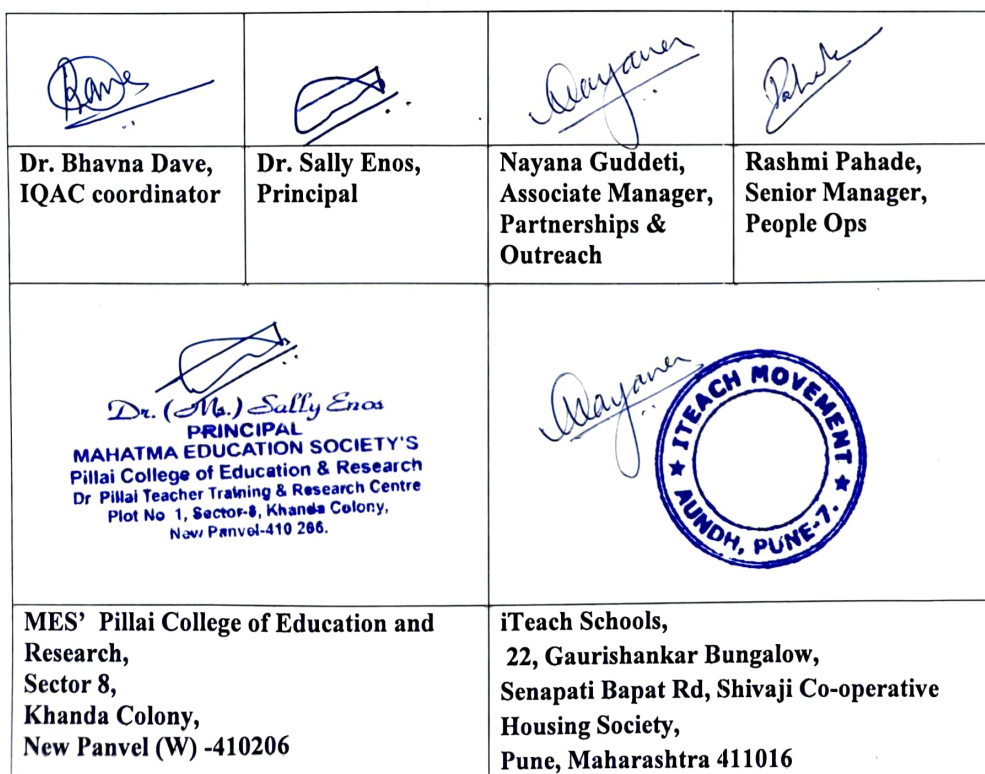 Dave
Nayanen
Pahade
Dr. Bhavna Dave,
IQAC coordinator
Dr. Sally Enos,
Principal
Nayana Guddeti,
Associate Manager,
Partnerships &
Outreach
Rashmi Pahade,
Senior Manager,
People Ops
Dr. (Ms.) Sally Enos
PRINCIPAL
MAHATMA EDUCATION SOCIETY'S
Pillai College of Education & Research
Dr Pillai Teacher Training & Research Centre
Plot No 1, Sector-8, Khanda Colony,
New Panvel-410 206.
Nayanen
★ ITEACH MOVEMENT ★
AUNDH, PUNE-7.
MES' Pillai College of Education and
Research,
Sector 8,
Khanda Colony,
New Panvel (W) -410206
iTeach Schools,
22, Gaurishankar Bungalow,
Senapati Bapat Rd, Shivaji Co-operative
Housing Society,
Pune, Maharashtra 411016